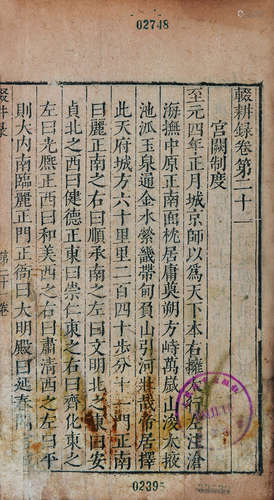 02748
輟耕録卷第二十一
宮闕制度
至元四年正月城京師以爲天下本右擁太行左注滄
海撫中原正南面枕居庸奠朔方峙萬歲山浚太液
池派玉泉通金水縈畿帶甸負山引河壯哉帝居擇
此天府城方六十里里二百四十步分十一門正南
曰麗正南之右曰順承南之左曰文明北之東曰安
貞北之西曰健德正東曰崇仁東之右曰齊化東之
左曰光熙正西曰和義西之右曰肅清西之左曰平
則大内南臨麗正門正衙曰大明殿曰延春閣
輟耕録
第二十一卷
02395